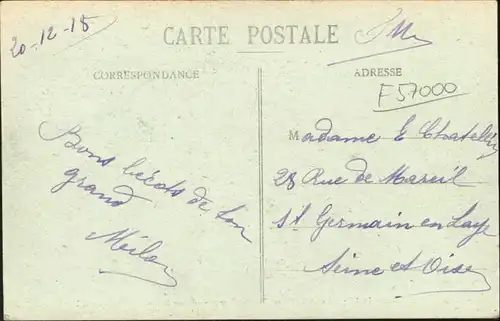 20-12-18
CARTE POSTALE
CORRESPONDANCE
ADRESSE
F57000
Bons bécots de ton
grand
Madame E Chatelin
28 Rue de Mareil
St Germain en Laye
Seine et Oise